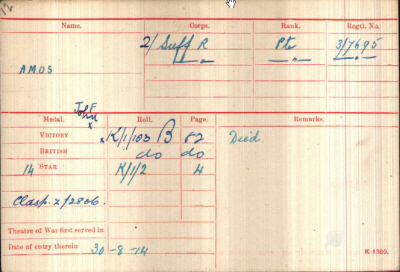 Name. Corps. Rank. Regtl. No.
2/ Suff R Pte 3/7695
" " "
AMOS
John F
Medal. Roll. Page. Remarks.
VICTORY K/1/103 B 52 Died
BRITISH do do
14 STAR K/1/2 4
Clasp. Z/2806.
Theatre of War first served in
Date of entry therein 30-8-14
K 1380.